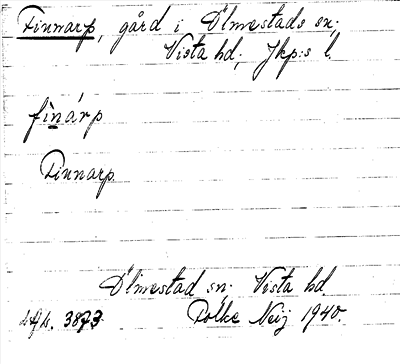 Finnarp, gård i Ölmestads sn;
Vista hd; Jkp:s l.
finárp
Finnarp.
Ölmestad sn. Vista hd.
3873. Folke Neij 1940.